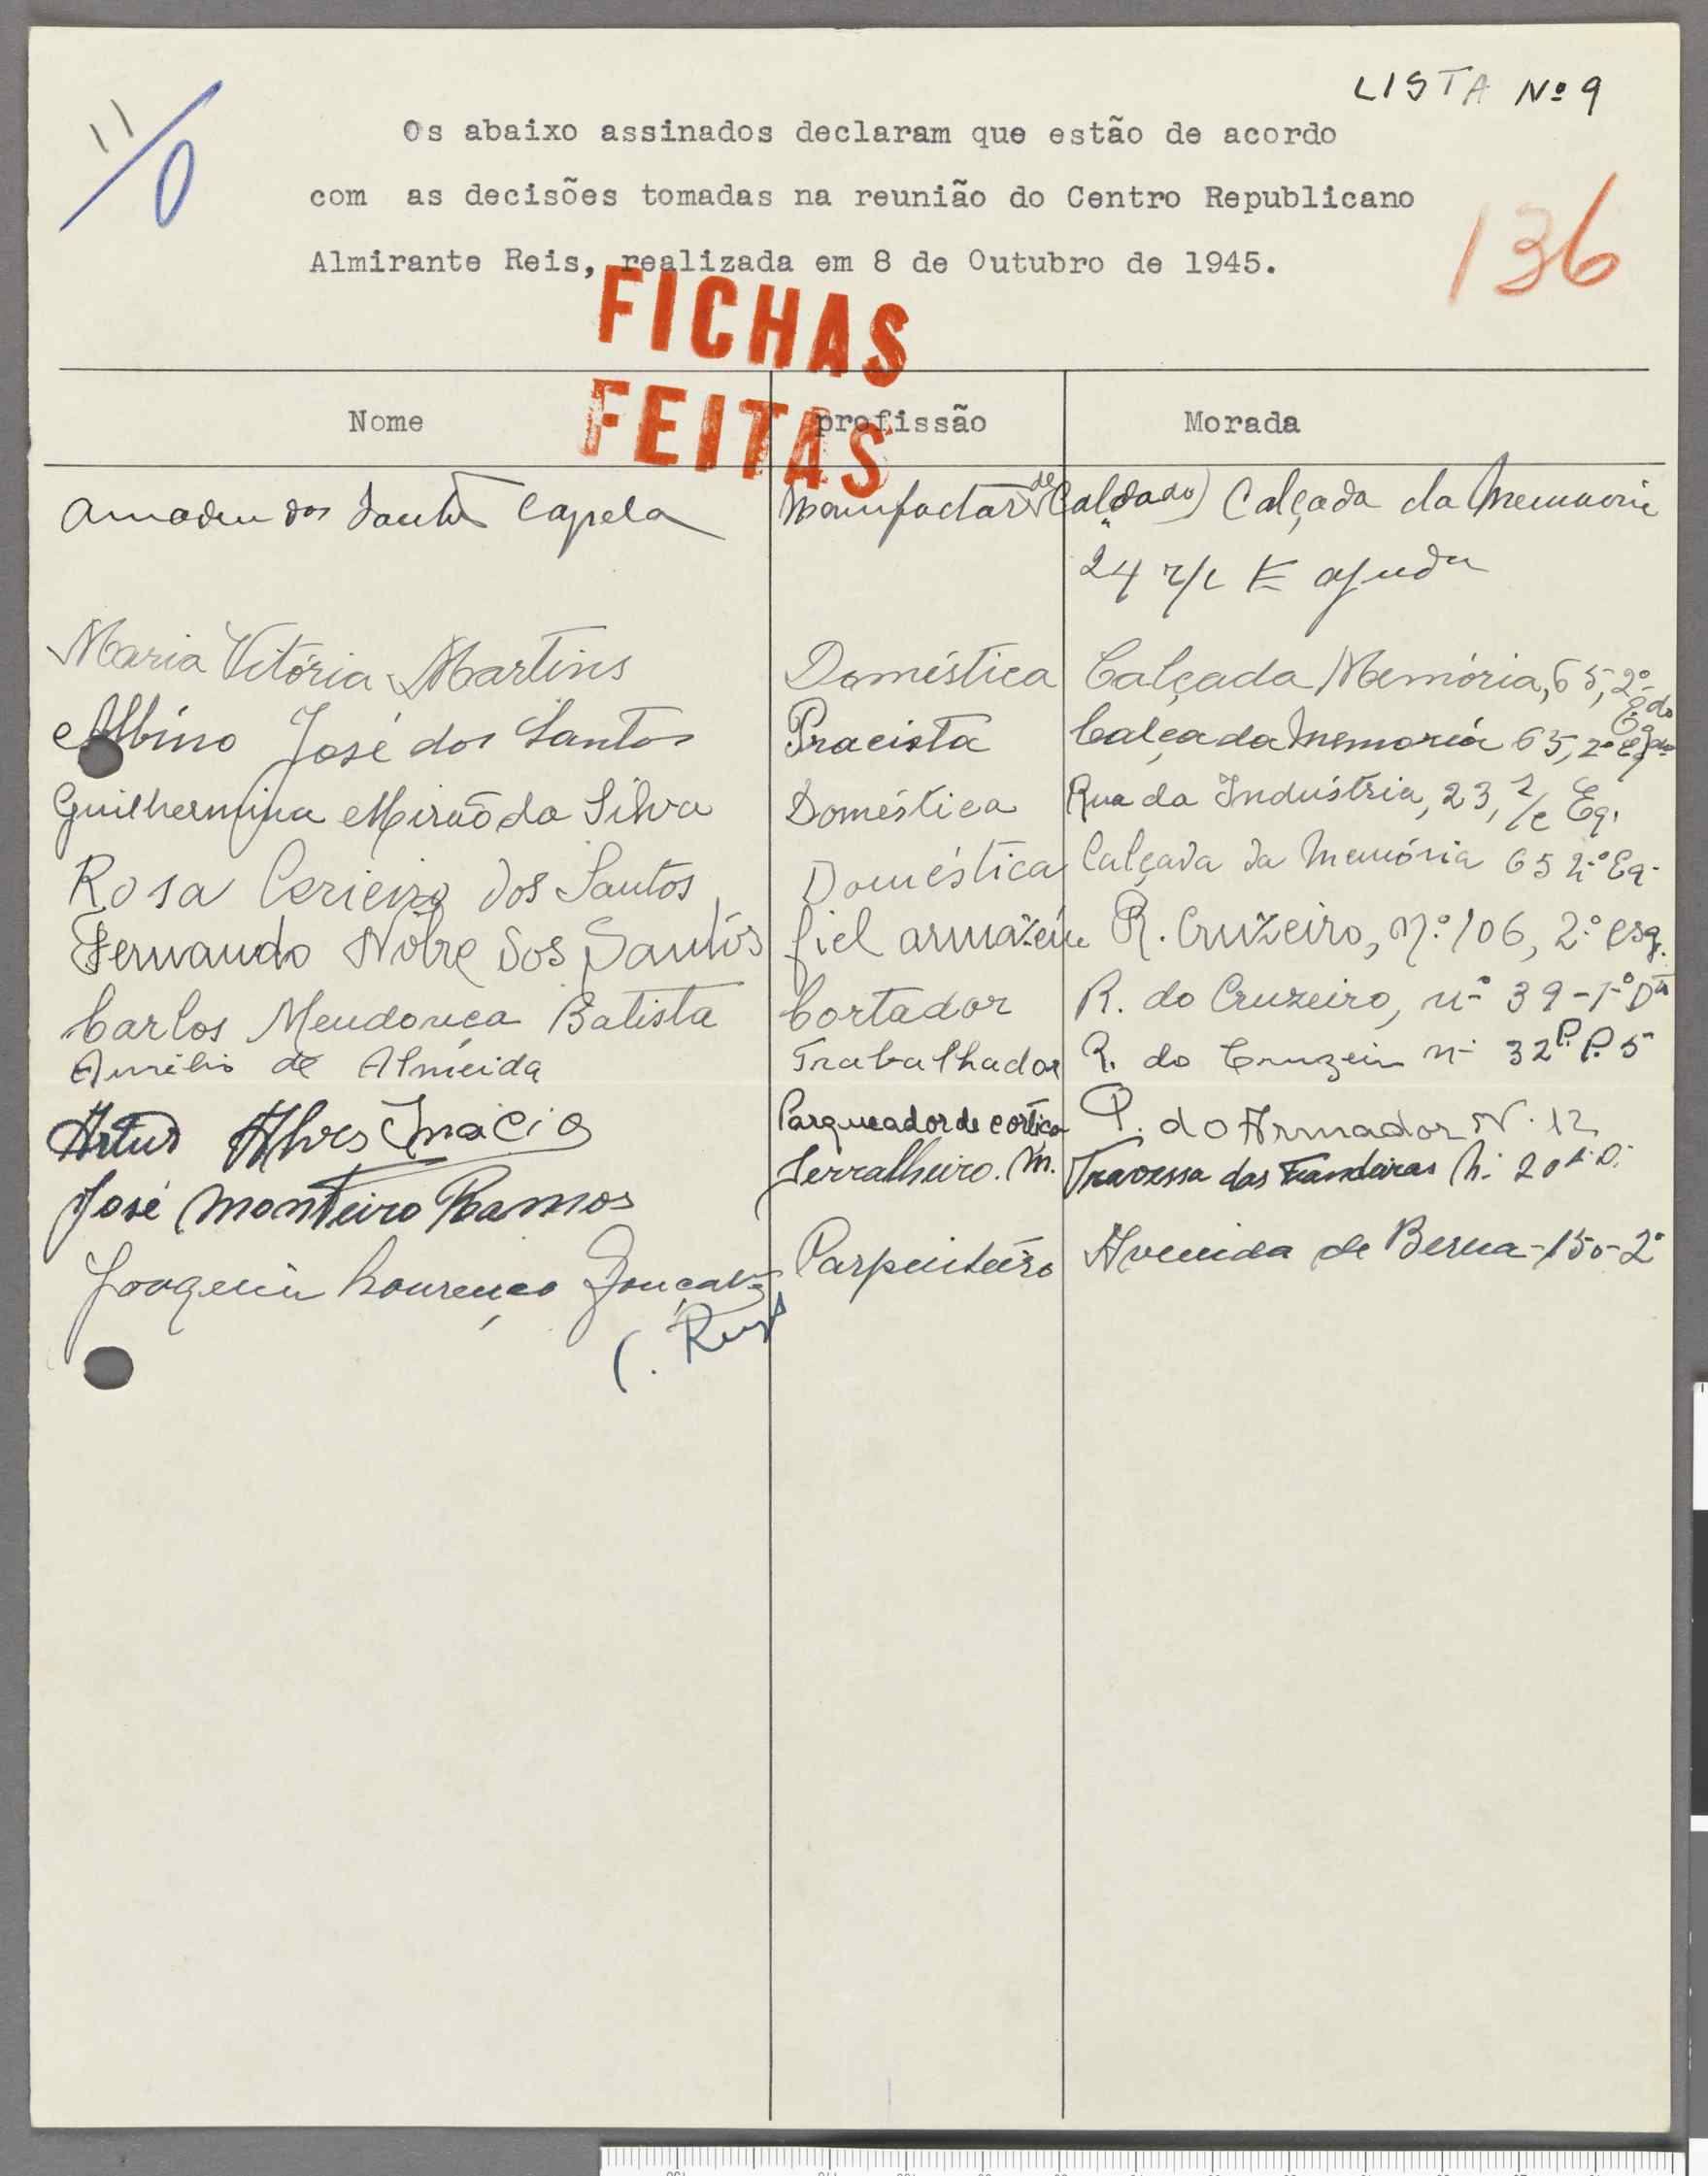 LISTA Nº 9
11/0
Os abaixo assinados declaram que estão de acordo
com as decisões tomadas na reunião do Centro Republicano
Almirante Reis, realizada em 8 de Outubro de 1945.
136
FICHAS
FEITAS
Nome profissão Morada
Amadeu dos Santos Capela Manufactor de Calçado) Calçada da Memoria
24 r/c E ajuda
Maria Vitória Martins Doméstica Calçada Memória, 65, 2º
Albino José dos Santos Pracista Calçada Memoria 65, 2º Eqdo
Guilhermina Mirão da Silva Doméstica Rua da Indústria, 23, r/c Eq.
Rosa Cerieiro dos Santos Doméstica Calçada da Memória 65 2º Eq.
Fernando Nobre dos Santos fiel armazém R. Cruzeiro, n.º 106, 2º esq.
Carlos Mendonça Batista Cortador R. do Cruzeiro, nº 39-1º Dto
Aurélio de Almeida Trabalhador R. do Cruzeiro nº 32 P. P. 5
Artur Alves Inácio Parqueador de cortiça P. do Armador N. 12
José Monteiro Ramos Serralheiro. M. Travessa das Fiandeiras N. 20 1. D.
Joaquim Lourenço Gonçalves Carpinteiro Avenida de Berna-150-2º